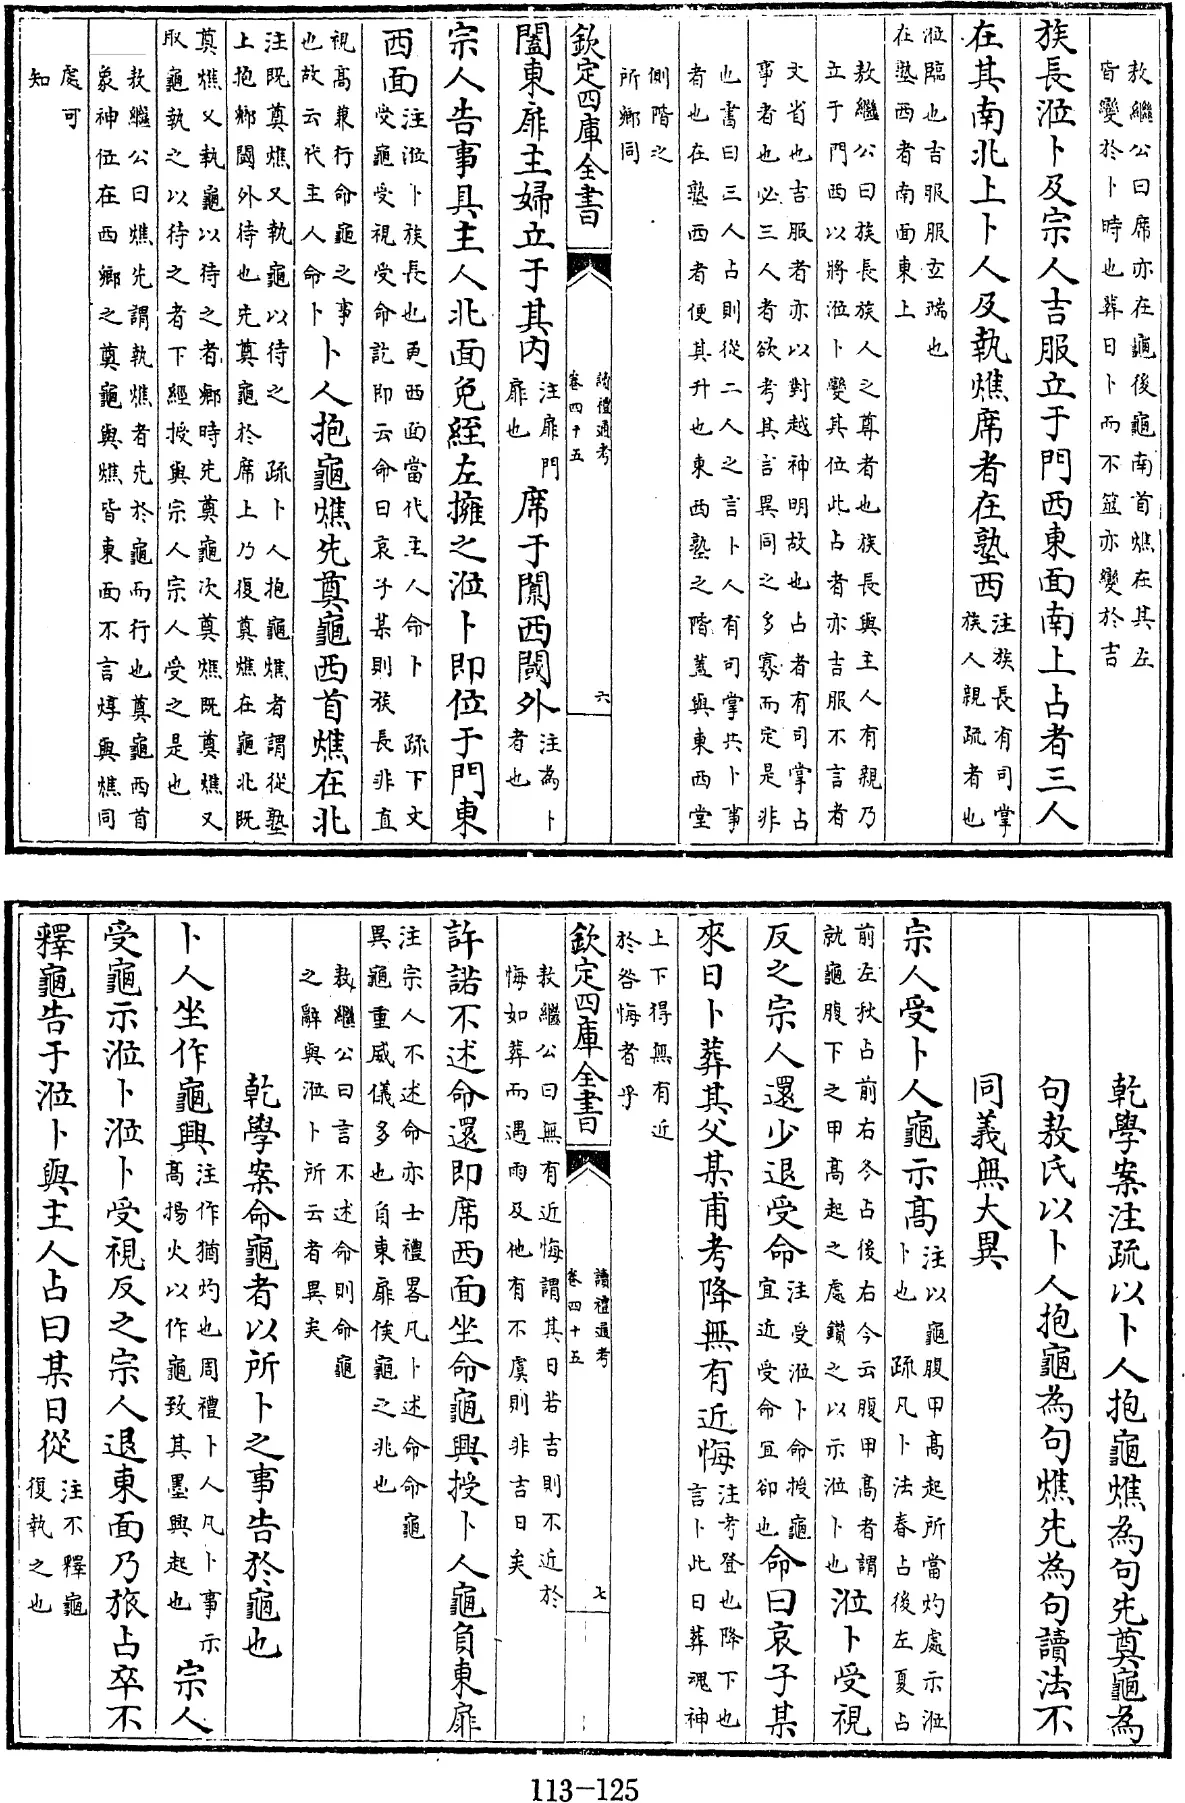 敖繼公曰席亦在龜後龜南首燋在其左
皆變於卜時也葬日卜而不筮亦變於吉
族長涖卜及宗人吉服立于門西東面南上占者三人
在其南北上卜人及執燋席者在塾西注族長有司掌族人親疏者也
涖臨也吉服服玄端也
在塾西者南面東上
敖繼公曰族長族人之尊者也族長與主人有親乃
立于門西以將涖卜變其位此占者亦吉服不言者
文省也吉服者亦以對越神明故也占者有司掌占
事者也必三人者欲考其言異同之多寡而定是非
也書曰三人占則從二人之言卜人有司掌共卜事
者也在塾西者便其升也東西塾之階蓋與東西堂
側階之
所鄉同
欽定四庫全書
讀禮通考
卷四十五
六
闔東扉主婦立于其内注扉門扉也席于闑西閾外注為卜者也
宗人告事具主人北面免絰左擁之涖卜即位于門東
西面注涖卜族長也更西面當代主人命卜 疏下文
受龜受視受命訖即云命曰哀子某則族長非直
視高兼行命龜之事
也故云代主人命卜卜人抱龜燋先奠龜西首燋在北
注既奠燋又執龜以待之 疏卜人抱龜燋者謂從塾
上抱鄉閾外待也先奠龜於席上乃復奠燋在龜北既
奠燋又執龜以待之者鄉時先奠龜次奠燋既奠燋又
取龜執之以待之者下經授與宗人宗人受之是也
敖繼公曰燋先謂執燋者先於龜而行也奠龜西首
象神位在西鄉之奠龜與燋皆東面不言焞與燋同
處可
知
乾學案注疏以卜人抱龜燋為句先奠龜為
句敖氏以卜人抱龜為句燋先為句讀法不
同義無大異
宗人受卜人龜示高注以龜腹甲高起所當灼處示涖卜也 疏凡卜法春占後左夏占
前左秋占前右冬占後右今云腹甲高者謂
就龜腹下之甲高起之處鑽之以示涖卜也涖卜受視
反之宗人還少退受命注受涖卜命授龜宜近受命宜卻也命曰哀子某
來日卜葬其父某甫考降無有近悔注考登也降下也言卜此日葬魂神
上下得無有近
於咎悔者乎
欽定四庫全書
讀禮通考
卷四十五
七
敖繼公曰無有近悔謂其日若吉則不近於
悔如葬而遇雨及他有不虞則非吉日矣
許諾不述命還即席西面坐命龜興授卜人龜負東扉
注宗人不述命亦士禮畧凡卜述命命龜
異龜重威儀多也負東扉俟龜之兆也
敖繼公曰言不述命則命龜
之辭與涖卜所云者異矣
乾學案命龜者以所卜之事告於龜也
卜人坐作龜興注作猶灼也周禮卜人凡卜事示高揚火以作龜致其墨興起也宗人
受龜示涖卜涖卜受視反之宗人退東面乃旅占卒不
釋龜告于涖卜與主人占曰某日從注不釋龜復執之也
113-125